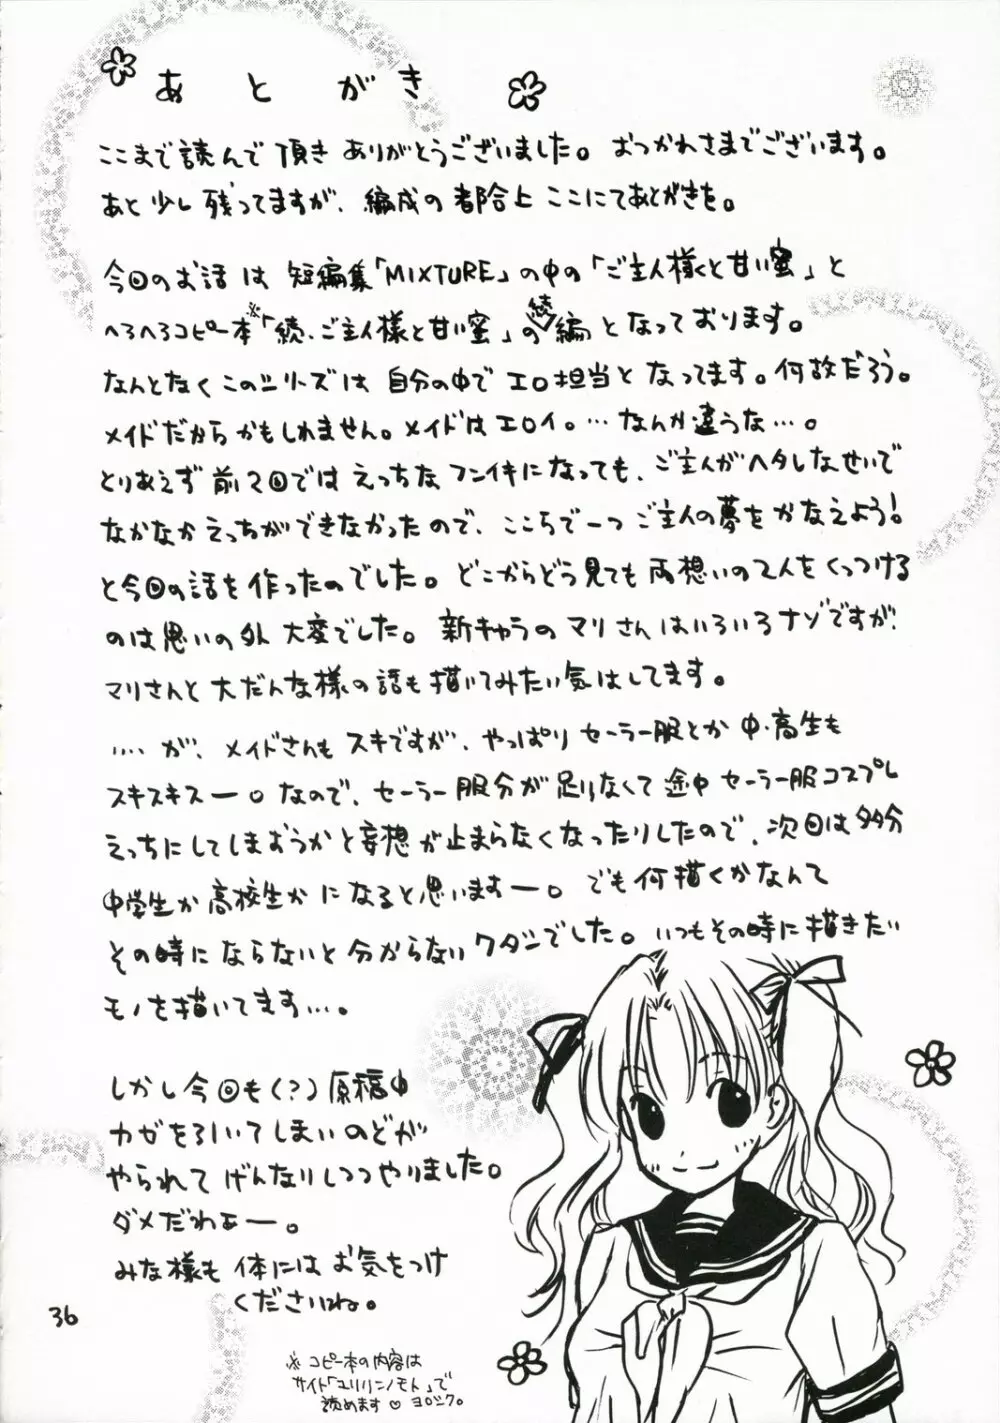 あとがき
ここまで読んで頂きありがとうございました。おつかれさまでございます。
あと少し残ってますが、編成の都合上ここにてあとがきを。
今回のお話は短編集「MIXTURE」の中の「ご主人様と甘い蜜」と
へろへろコピー本※「続、ご主人様と甘い蜜」の続編となっております。
なんとなくこのシリーズは自分の中でエロ担当となってます。何故だろう。
メイドだからかもしれません。メイドはエロイ。…なんか違うな…。
とりあえず前2回ではえっちなフンイキになっても、ご主人がヘタレなせいで
なかなかえっちができなかったので、ここらで一つご主人の夢をかなえよう!
と今回の話を作ったのでした。どこからどう見ても両想いの2人をくっつける
のは思いの外大変でした。新キャラのマリさんはいろいろナゾですが、
マリさんと大だんな様の話も描いてみたい気はしてます。
…が、メイドさんもスキですが、やっぱりセーラー服とか中・高生も
スキスキスー。なので、セーラー服分が足りなくて途中セーラー服コスプレ
えっちにしてしまおうかと妄想が止まらなくなったりしたので、次回は多分
中学生か高校生かになると思いますー。でも何描くかなんて
その時にならないと分からないワタシでした。いつもその時に描きたい
モノを描いてます…。
しかし今回も(?)原稿中
カゼを引いてしまいのどが
やられてげんなりしつつやりました。
ダメだわぁー。
みな様も体にはお気をつけ
くださいね。
※コピー本の内容は
サイト「ユリリンノモト」で
読めます♡ヨロシク。
36